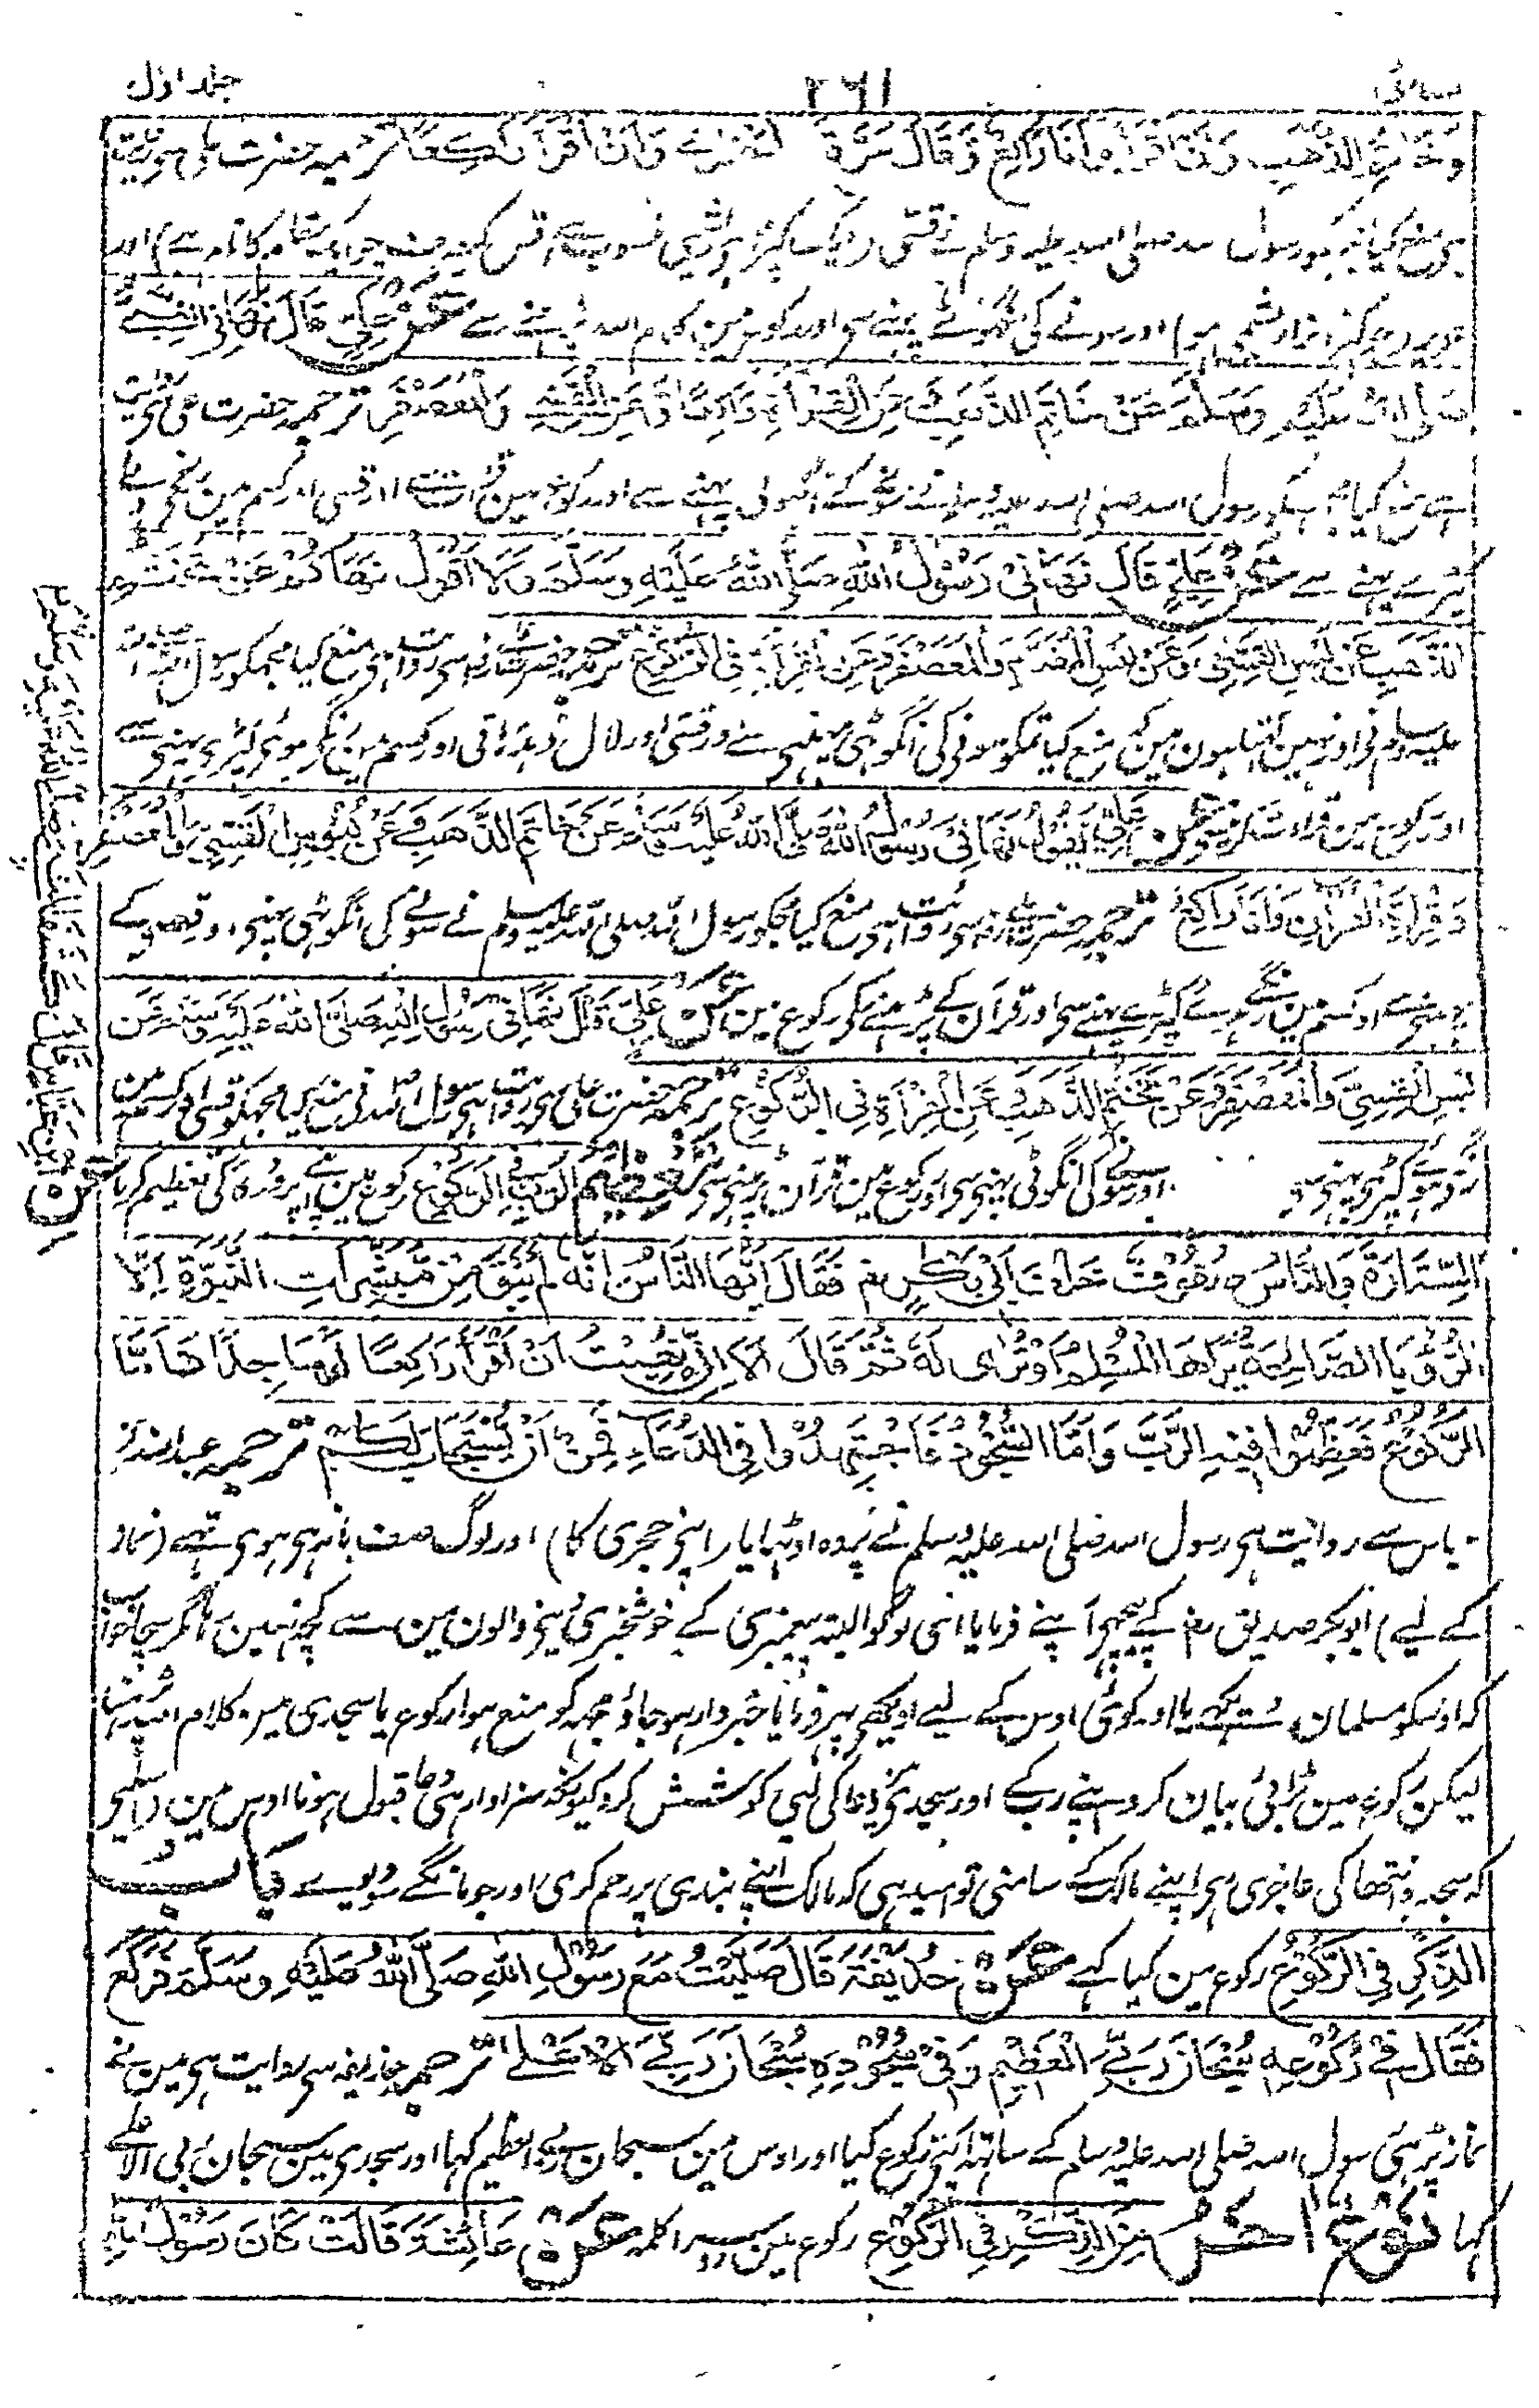 نسائی ۲۶۱ جلد اول
وَخَاتَمِ الذَّهَبِ وَأَنْ أَقْرَأَ وَأَنَا رَاكِعٌ وَقَالَ مَرَّةً أُخْرَى وَأَنْ أَقْرَأَ رَاكِعًا ترجمہ حضرت علی سی روایت
ہی منع کیا نبی رسول اللہ صلی اللہ علیہ وسلم نے قسی
حریر اور سونے کی انگوٹھی پہننے سی اور رکوع مین کلام اللہ پڑہنے سے عَنْ عَلِيٍّ قَالَ نَهَانِي النَّبِيُّ
صَلَّى اللهُ عَلَيْهِ وَسَلَّمَ عَنْ خَاتَمِ الذَّهَبِ وَعَنِ الْقِرَاءَةِ رَاكِعًا وَعَنِ الْقَسِّيِّ وَالْمُعَصْفَرِ ترجمہ حضرت علی سی روایت
ہے منع کیا مجہکو رسول اللہ صلی اللہ علیہ وسلم نے سونے کے انگوٹھی پہننے سے اور رکوع مین قرأت سے اور قسی اور کسم مین رنگے ہوئے
کپڑے پہننے سے عَنْ عَلِيٍّ قَالَ نَهَانِي رَسُولُ اللهِ صَلَّى اللهُ عَلَيْهِ وَسَلَّمَ وَلَا أَقُولُ نَهَاكُمْ عَنْ تَخَتُّمِ
الذَّهَبِ وَعَنْ لُبْسِ الْقَسِّيِّ وَعَنْ لُبْسِ الْمُفَدَّمِ وَالْمُعَصْفَرِ وَعَنِ الْقِرَاءَةِ فِي الرُّكُوعِ ترجمہ حضرت علی سی روایت ہی منع کیا مجہکو رسول اللہ صلی اللہ
علیہ وسلم نی اور نہین کہتا ہون مین کہ منع کیا تمکو سونی کی انگوٹھی پہننی سے اور قسی اور لال اور کسم مین رنگی ہوئی کپڑی پہننی سے
اور رکوع مین قراءت کرنے سی عَنْ عَلِيٍّ يَقُولُ نَهَانِي رَسُولُ اللهِ صَلَّى اللهُ عَلَيْهِ وَسَلَّمَ عَنْ خَاتَمِ الذَّهَبِ وَعَنْ لُبُوسِ الْقَسِّيِّ وَالْمُعَصْفَرِ
وَقِرَاءَةِ الْقُرْآنِ وَأَنَا رَاكِعٌ ترجمہ حضرت علی سی روایت ہی منع کیا مجکو رسول اللہ صلی اللہ علیہ وسلم نے سونے کی انگوٹھی پہننی اور قسی کے
پہننے سے اور کسم مین رنگے ہوئے کپڑے پہننے سی اور قرآن کے پڑہنے کو رکوع مین عَنْ عَلِيٍّ قَالَ نَهَانِي رَسُولُ اللهِ صَلَّى اللهُ عَلَيْهِ وَسَلَّمَ عَنْ
لُبْسِ الْقَسِّيِّ وَالْمُعَصْفَرِ وَعَنْ تَخَتُّمِ الذَّهَبِ وَعَنِ الْقِرَاءَةِ فِي الرُّكُوعِ ترجمہ حضرت علی سی روایت ہی رسول اللہ نی منع کیا مجہکو قسی اور کسم مین
رنگے ہوئے کپڑی پہننے سے اور سونیکی انگوٹی پہننی سی اور رکوع مین قرآن پڑہنی سی تَعْظِيمُ الرَّبِّ فِي الرُّكُوعِ رکوع مین اپنے پروردگار کی تعظیم کرنا
عَنِ ابْنِ عَبَّاسٍ قَالَ كَشَفَ رَسُولُ اللهِ صَلَّى اللهُ عَلَيْهِ وَسَلَّمَ
السِّتَارَةَ وَالنَّاسُ صُفُوفٌ خَلْفَ أَبِي بَكْرٍ رض فَقَالَ أَيُّهَا النَّاسُ إِنَّهُ لَمْ يَبْقَ مِنْ مُبَشِّرَاتِ النُّبُوَّةِ إِلَّا
الرُّؤْيَا الصَّالِحَةُ يَرَاهَا الْمُسْلِمُ أَوْ تُرَى لَهُ ثُمَّ قَالَ أَلَا إِنِّي نُهِيتُ أَنْ أَقْرَأَ رَاكِعًا أَوْ سَاجِدًا فَأَمَّا
الرُّكُوعُ فَعَظِّمُوا فِيهِ الرَّبَّ وَأَمَّا السُّجُودُ فَاجْتَهِدُوا فِي الدُّعَاءِ قَمِنٌ أَنْ يُسْتَجَابَ لَكُمْ ترجمہ عبد اللہ بن
عباس سے روایت ہی رسول اللہ صلی اللہ علیہ وسلم نے پردہ اوٹہایا (اپنی حجری کا) اور لوگ صف باندہی ہوی تہے (نماز
کے لیے) ابو بکر صدیق رض کے پیچہی آپنے فرمایا ای لوگو البتہ پیغمبری کے خوشخبری دینی والون مین سے کچہ نہین رہا مگر سچا خواب
کہ اوسکو مسلمان دیکہے یا اور کوئی اوس کے لیے دیکہے پہر فرمایا خبردار ہو جاؤ مجہہ کو منع ہوا رکوع یا سجدی میں کلام اللہ پڑہنا
لیکن رکوع مین بڑائی بیان کرو اپنے رب کے اور سجدیمین دعا کی لیی کوشش کرو کیونکہ سزاوار ہی دعا قبول ہونا اوس مین (اسلیے
کہ سجدہ انتہا کی عاجزی ہی اپنے مالک کے سامنی تو امید ہی کہ مالک اپنے بندی پر رحم کری اور جو مانگے دیوے بَابُ
الذِّكْرِ فِي الرُّكُوعِ رکوع مین کیا کہے عَنْ حُذَيْفَةَ قَالَ صَلَّيْتُ مَعَ رَسُولِ اللهِ صَلَّى اللهُ عَلَيْهِ وَسَلَّمَ فَرَكَعَ
فَقَالَ فِي رُكُوعِهِ سُبْحَانَ رَبِّيَ الْعَظِيمِ وَفِي سُجُودِهِ سُبْحَانَ رَبِّيَ الْأَعْلَى ترجمہ حذیفہ سی روایت ہی مین نے
نماز پڑہی رسول اللہ صلی اللہ علیہ وسلم کے ساتہہ آپنے رکوع کیا اور اوس مین سبحان ربی العظیم کہا اور سجدی مین سبحان ربی الاعلے
کہا نَوْعٌ آخَرُ مِنَ الذِّكْرِ فِي الرُّكُوعِ رکوع مین دوسرا کلمہ عَنْ عَائِشَةَ قَالَتْ كَانَ رَسُولُ اللهِ